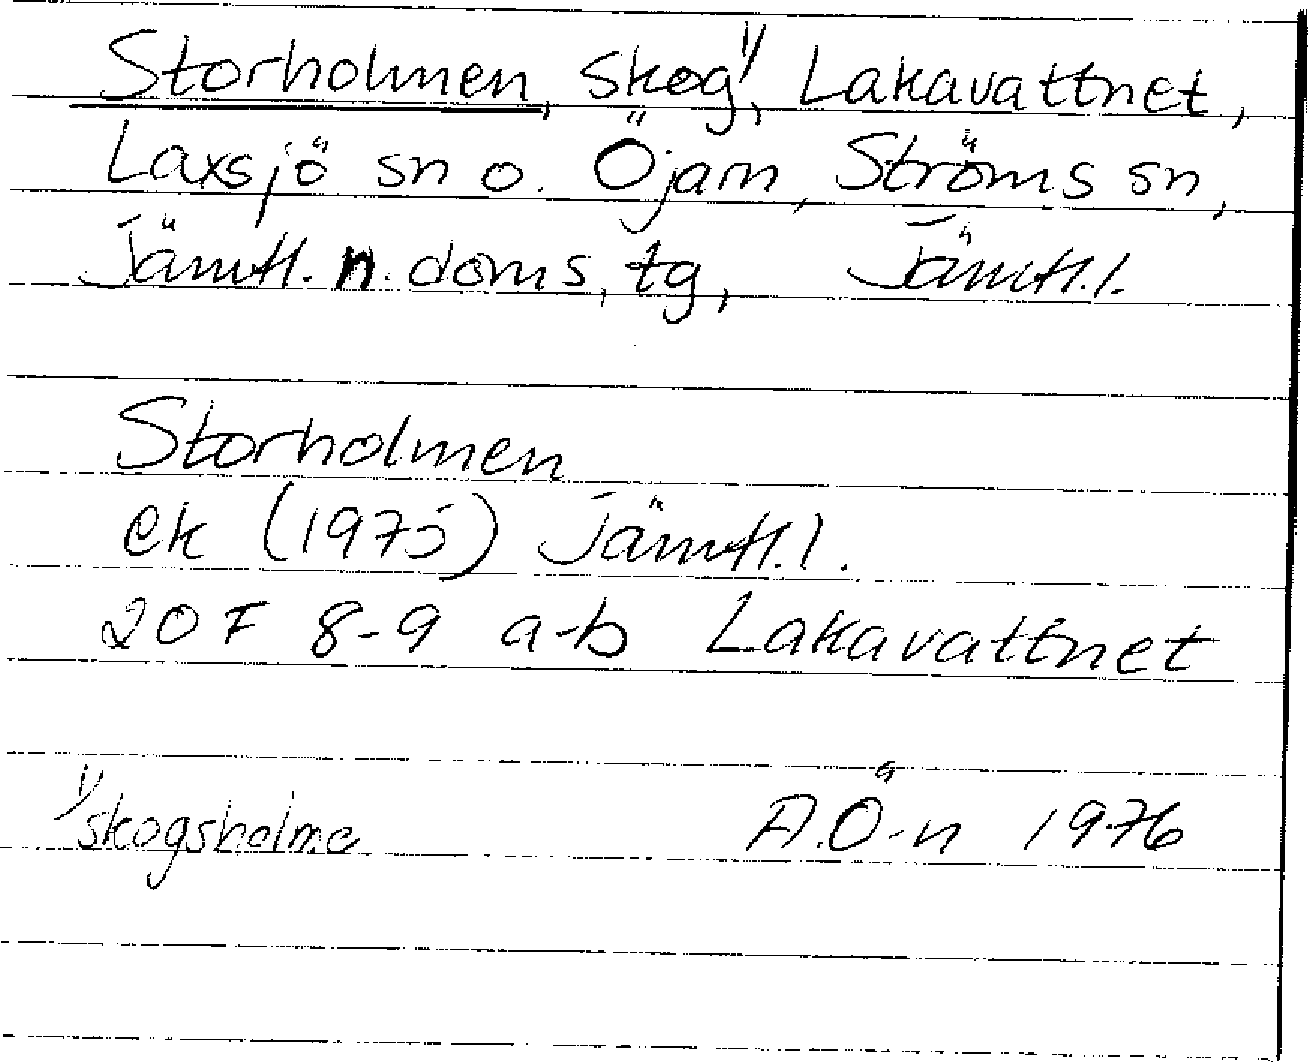 Storholmen, skog 1/, Lakavattnet,
Laxsjö sn o. Öjarn, Ströms sn,
Jämtl. n. doms, tg, Jämtl.l.
Storholmen
ek (1975) Jämtl.l.
20 F 8-9 a-b Lakavattnet
1/ skogsholme
A.Ö-n 1976